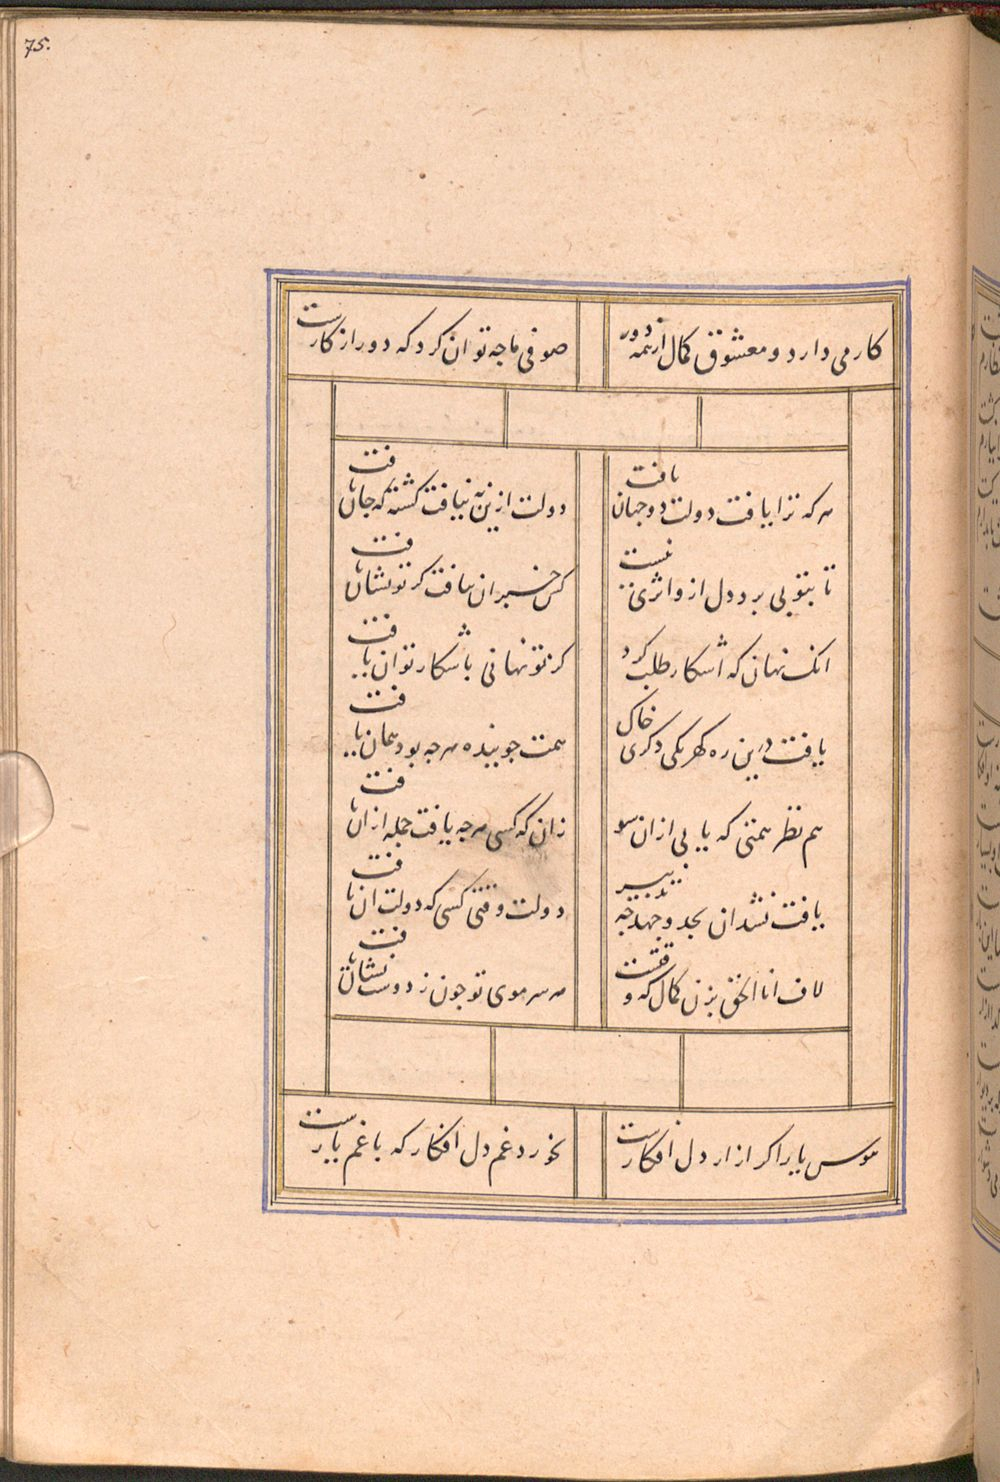 75.
کار می دارد و معشوق کمال از همه دور صوفی ما جه توان کرد که دور از کارست
هر که ترا یافت دولت دو جهان یافت دولت ازین به نیافت کشته که جان یافت
تا بتو پی برد دل ازو اثری نیست کس خبر ان نیافت کز تو نشان یافت
انک نهان که اشکار طلب کرد کز تو نهانی باشکار توان یافت
یافت درین ره کهر یکی دکری خاک همت جوینده هر جه بود همان یافت
هم نظر همتی که یابی ازان سو زان که کسی هر جه یافت جمله ازان یافت
یافت نشد ان بجد و جهد جه تدبیر دولت وقتی کسی که دولت ان یافت
لاف انا الحق بزن کمال که وقتست هر سر موی تو جون ز دوست نشان یافت
هوس یار اکر ازار دل افکارست نخورد غم دل افکار که با غم یارست